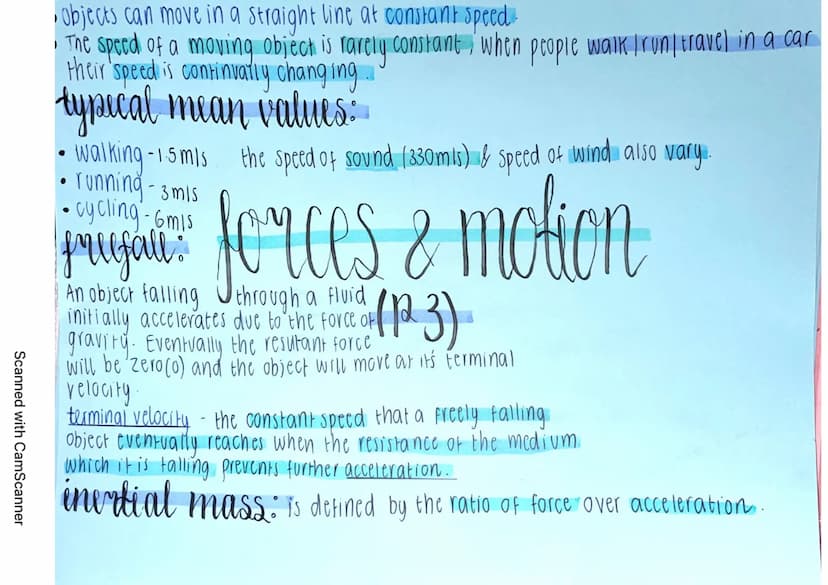 • Objects can move in a straight line at constant speed.
• The speed of a moving object is rarely constant, when people walk/run/travel in a car
their speed is continually changing.
typical mean values:
• walking - 1.5m/s the speed of sound (330m/s) & speed of wind also vary.
• running - 3m/s
• cycling - 6m/s
forces & motion
(P3)
freefall:
An object falling through a fluid
initially accelerates due to the force of
gravity. Eventually the resutant force
will be zero(0) and the object will move at it's terminal
velocity.
terminal velocity - the constant speed that a freely falling
object eventually reaches when the resistance of the medium
which it is falling prevents further acceleration.
inertial mass: is defined by the ratio of force over acceleration.
Scanned with CamScanner